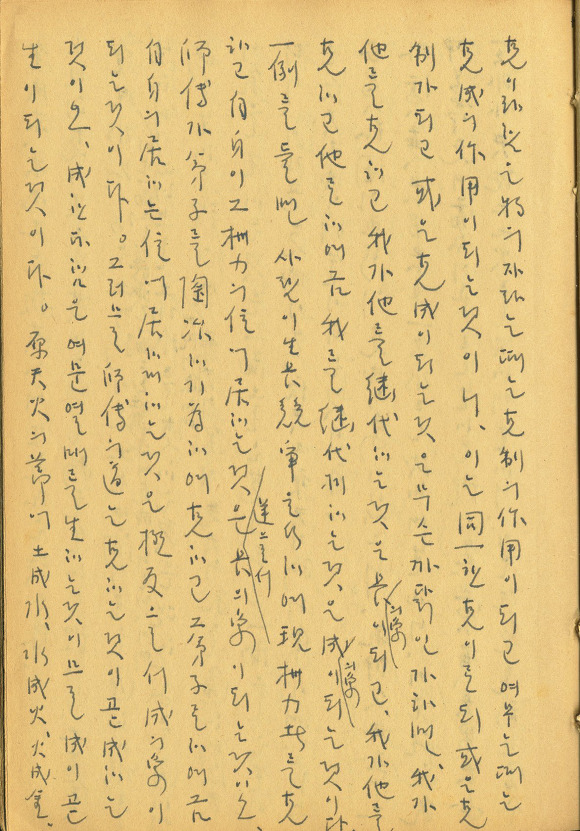 克이라 함은 物의 자라는 때는 克制의 作用이 되고 여무는 때는
克成의 作用이 되는 것이니, 이는 同一한 克이로되 或은 克
制가 되고 或은 克成이 되는 것은 무슨 까닭인가 하면, 我가
他를 克하고 我가 他를 継代하는 것은 長의 象이 되고, 我가 他를
克하고 他로 하여금 我를 継代케 하는 것은 成의 象이 되는 것이다.
一例를 들면 사람이 生長競爭을 行하여 現權力者를 克
하고 自身이 그 權力의 位에 居하는 것은 長의 象이 되는 것이오,
師傅가 弟子를 陶冶하기 爲하여 克하고 그 弟子로 하여금
自身의 居하는 位에 居케 하는 것은 逆으로서 成의 象이
되는 것이다。 그러므로 師傅의 道는 克하는 것이 곧 成하는
것이오, 成한다 함은 여문 열매를 生하는 것이므로 成이 곧
生이 되는 것이다。 原天火의 節에 土成水、水成火、火成金、